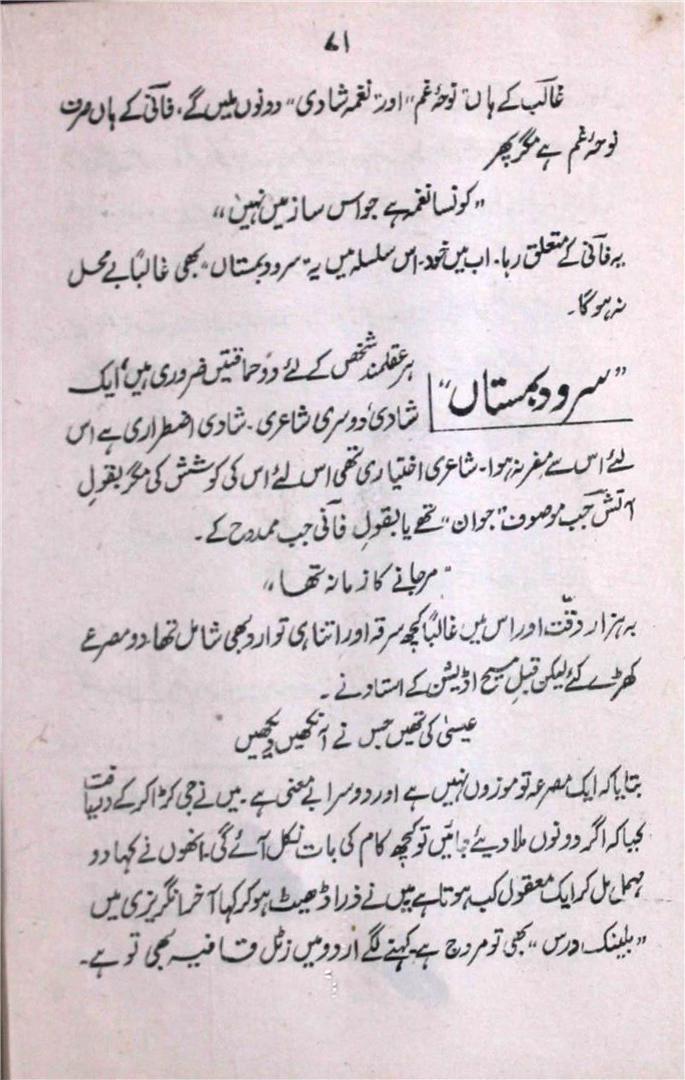 ۸۱
غالبؔ کے ہاں "نوحۂ غم" اور "نغمہ شادی" دونوں ملیں گے، فانیؔ کے ہاں صرف
نوحۂ غم ہے مگر پھر
"کونسا نغمہ ہے جو اس ساز میں نہیں"
یہ فانیؔ کے متعلق رہا۔ اب میں خود۔ اس سلسلہ میں یہ "سرود بمستاں" بھی غالباً بے محل
نہ ہوگا۔
"سرود بمستاں"
ہر عقلمند شخص کے لئے دو حماقتیں ضروری ہیں، ایک
شادی، دوسری شاعری۔ شادی اضطراری ہے اس
لئے اس سے مفر نہ ہوا۔ شاعری اختیاری تھی اس لئے اس کی کوشش کی مگر بقولِ
آتشؔ جب موصوف "جوان" تھے یا بقولِ فانی جب ممدوح کے۔
"مرجانے کا زمانہ تھا"
بہ ہزار دقّت اور اس میں غالباً کچھ سرقہ اور اتنا ہی توارد بھی شامل تھا۔ دو مصرعے
کھڑے کئے لیکن قبلِ مسیح اڈیشن کے استاد نے۔
عیسیٰ کی تھیں جس نے آنکھیں دیکھیں
بتایا کہ ایک مصرعہ تو موزوں نہیں ہے اور دوسرا بے معنی ہے۔ میں نے جی کڑا کر کے دریافت
کیا کہ اگر دونوں ملا دیئے جائیں تو کچھ کام کی بات نکل آئے گی۔ انھوں نے کہا دو
مہمل مل کر ایک معقول کب ہوتا ہے میں نے ذرا ڈھیٹ ہو کر کہا آخر انگریزی میں
"بلینک ورس" بھی تو مروج ہے۔ کہنے لگے اردو میں زٹل قافیہ بھی تو ہے۔